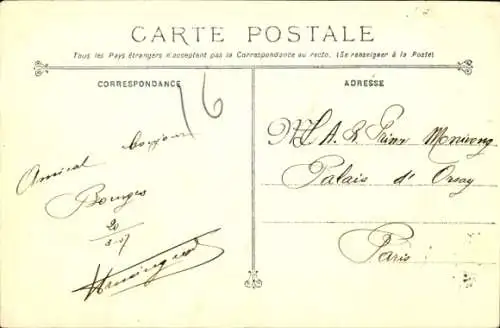 CARTE POSTALE
Tous les Pays étrangers n'acceptent pas la Correspondance au recto. (Se renseigner à la Poste)
CORRESPONDANCE
16
Amical bonjour
Bourges
20
3-07
ADRESSE
A. R. Prince Monivong
Palais d'Orsay
Paris